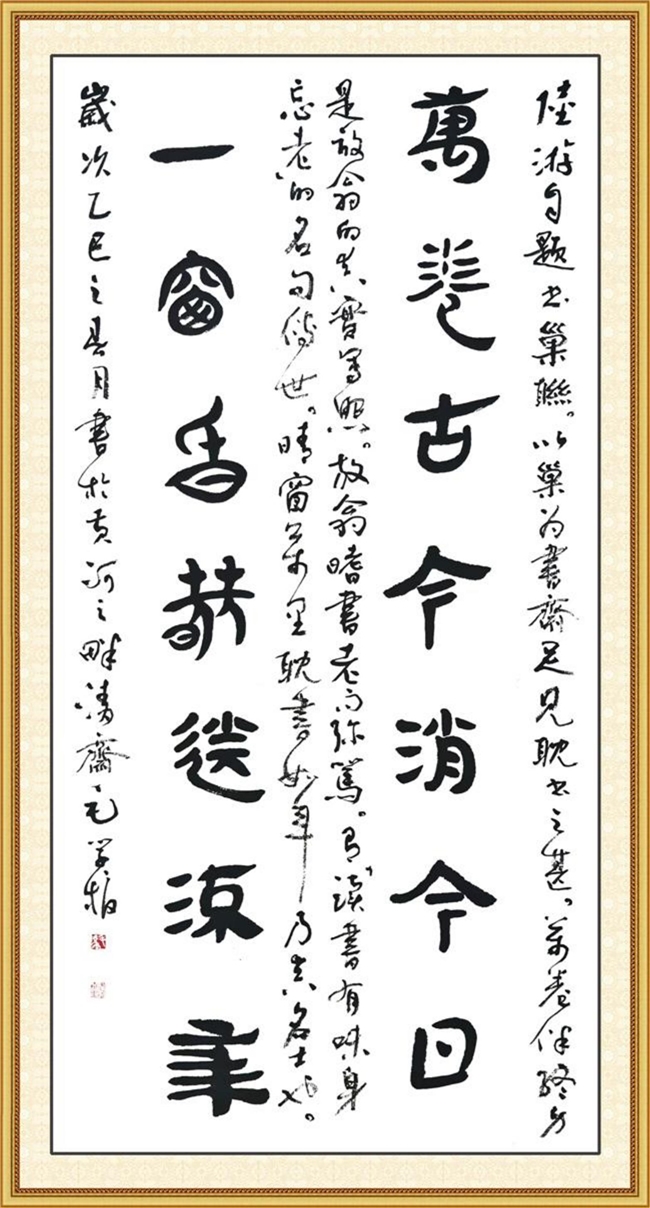 陸游自題书巢聯。以巢为書齋足見耽书之甚。萬卷伴終身
萬卷古今消今日
是放翁的真實写照。放翁嗜書老而弥篤。有“讀書有味身
忘老”的名句傳世。晴窗 耽書 年乃真名士也。
一窗昏曉送流年
歲次乙巳之春月書於黄河之畔清齋毛学柏